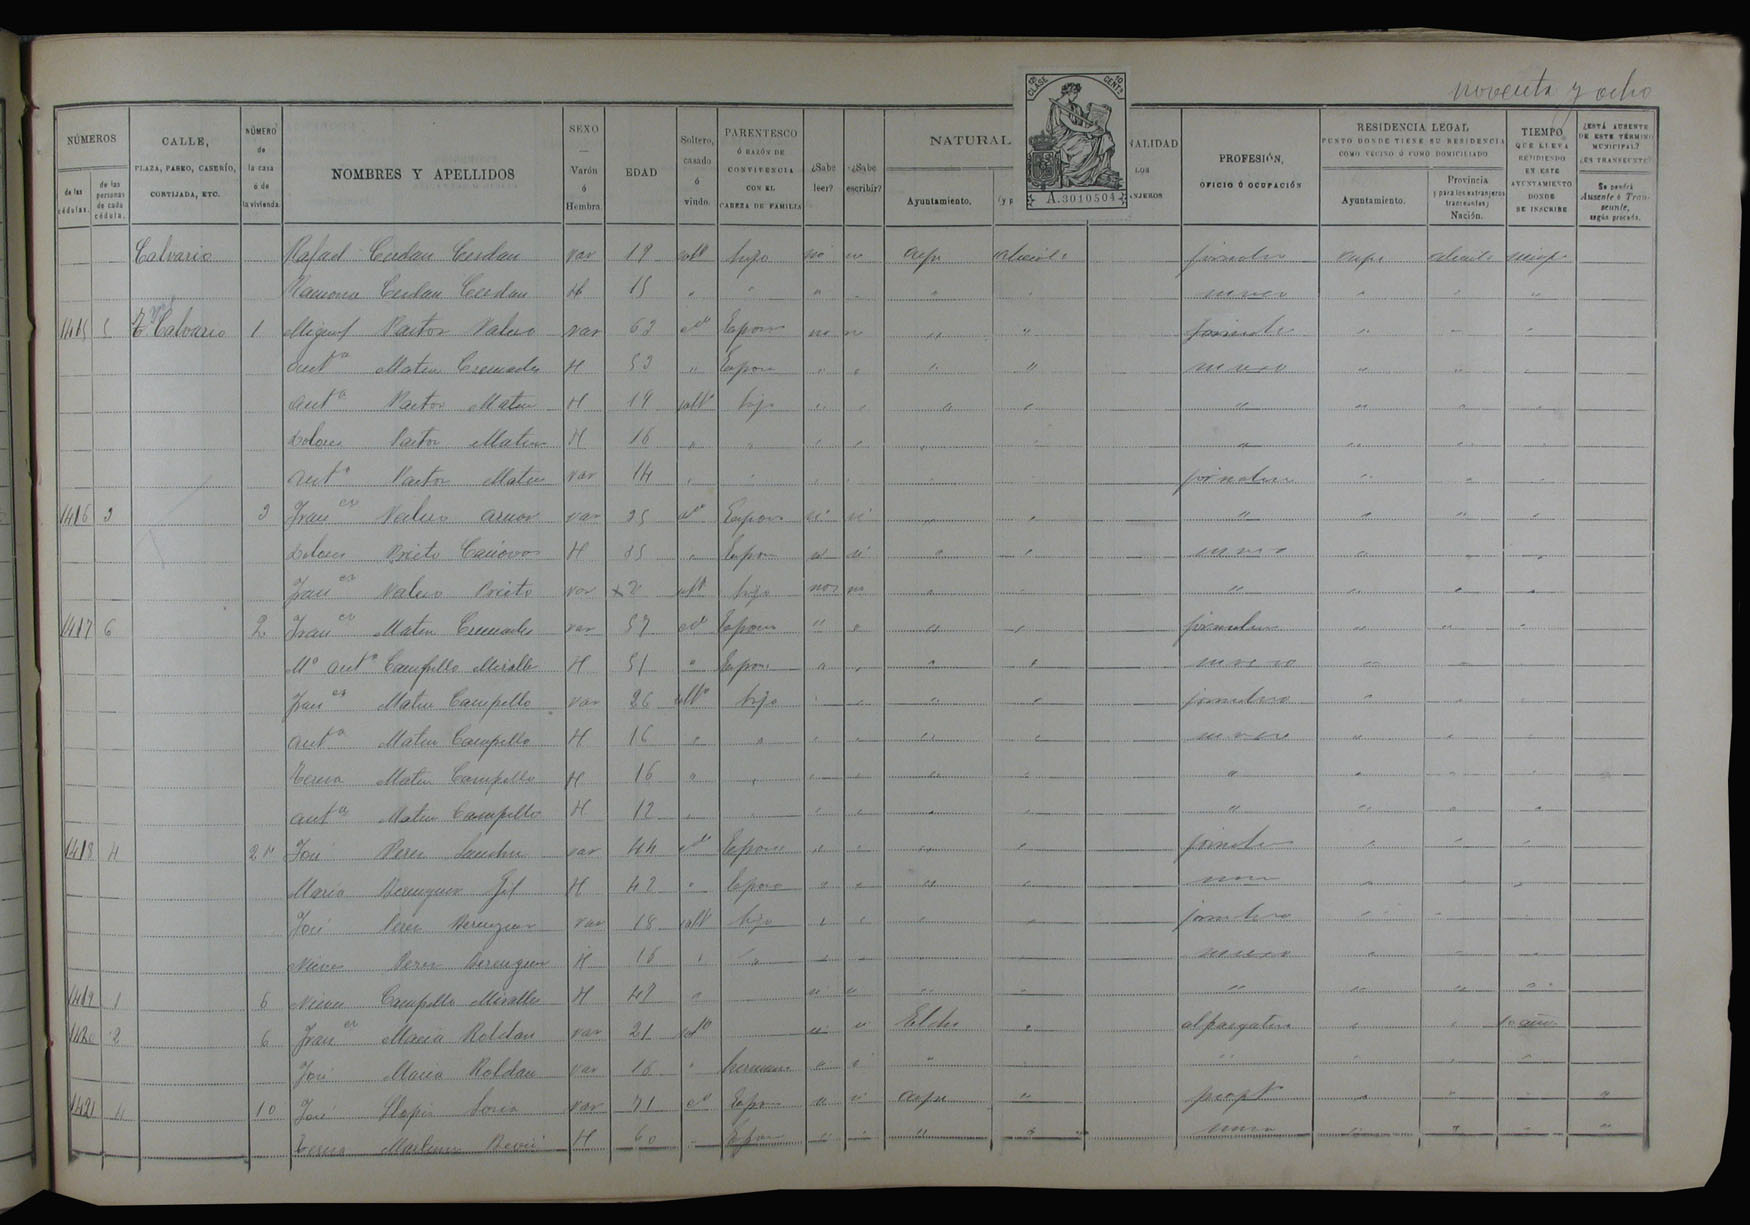 noventa y ocho
12ª CLASE 10 CENTS
A.3010504
NÚMEROS
de las cédulas.
de las personas de cada cédula.
CALLE,
PLAZA, PASEO, CASERÍO,
CORTIJADA, ETC.
NÚMERO de la casa ó de la vivienda.
NOMBRES Y APELLIDOS
SEXO
Varón ó Hembra.
EDAD
Soltero, casado ó viudo.
PARENTESCO
Ó RAZÓN DE CONVIVENCIA CON EL CABEZA DE FAMILIA
¿Sabe leer?
¿Sabe escribir?
NATURAL
Ayuntamiento.
PROFESIÓN,
OFICIO Ó OCUPACIÓN
RESIDENCIA LEGAL
PUNTO DONDE TIENE SU RESIDENCIA COMO VECINO Ó COMO DOMICILIADO
Ayuntamiento.
Provincia
(y para los extranjeros transeuntes)
Nación.
TIEMPO
QUE LLEVA RESIDIENDO EN ESTE AYUNTAMIENTO DONDE SE INSCRIBE
¿ESTÁ AUSENTE DE ESTE TÉRMINO MUNICIPAL?
¿ES TRANSEUNTE?
Se pondrá Ausente ó Transeunte, según proceda.
Calvario Rafael Cerdan Cerdan var 19 solt hijo no no aspe alicante jornalero aspe alicante
Ramona Cerdan Cerdan H 15 " "
1415 5 Calvario 1 Miguel Pastor Valero var 63 cdo Esposo no no " " jornalero " "
Antª Mateu Cremades H 53 " Esposa " "
Antª Pastor Mateu H 19 soltª hija " "
Dolores Pastor Mateu H 16 " "
Antº Pastor Mateu var 14 " " jornalero
1416 3 3 Francº Valero var 35 cdo Esposo si si " "
Dolores Prieto H 35 " Esposa
Francº Valero Prieto var 2 solt hijo no no " "
1417 6 2 Francº Mateu Cremades var 57 cdo Esposo " " jornalero
Mª Antª Campello Miralles H 51 " Esposa " "
Francº Mateu Campello var 26 solto hijo jornalero
Antª Mateu Campello H 16 " "
Teresa Mateu Campello H 16 " "
Antª Mateu Campello H 12 " "
1418 4 José Perez Sanchez var 44 cdo Esposo " " jornalero
Maria Berenguer Gil H 42 " Esposa " "
José Perez Berenguer var 18 solt hijo " " jornalero
Nieves Perez Berenguer H 16 " "
1419 1 6 Nieves Campello Miralles H 49 " " "
1420 2 6 Francº Macia Roldan var 21 solto " " Elche " alpargatero " " 10 años
José Macia Roldan var 16 " hermano " " " "
1421 4 10 José Llopis Soria var 71 cdo Esposo " " aspe "
Teresa Martinez H 60 " Esposa " "